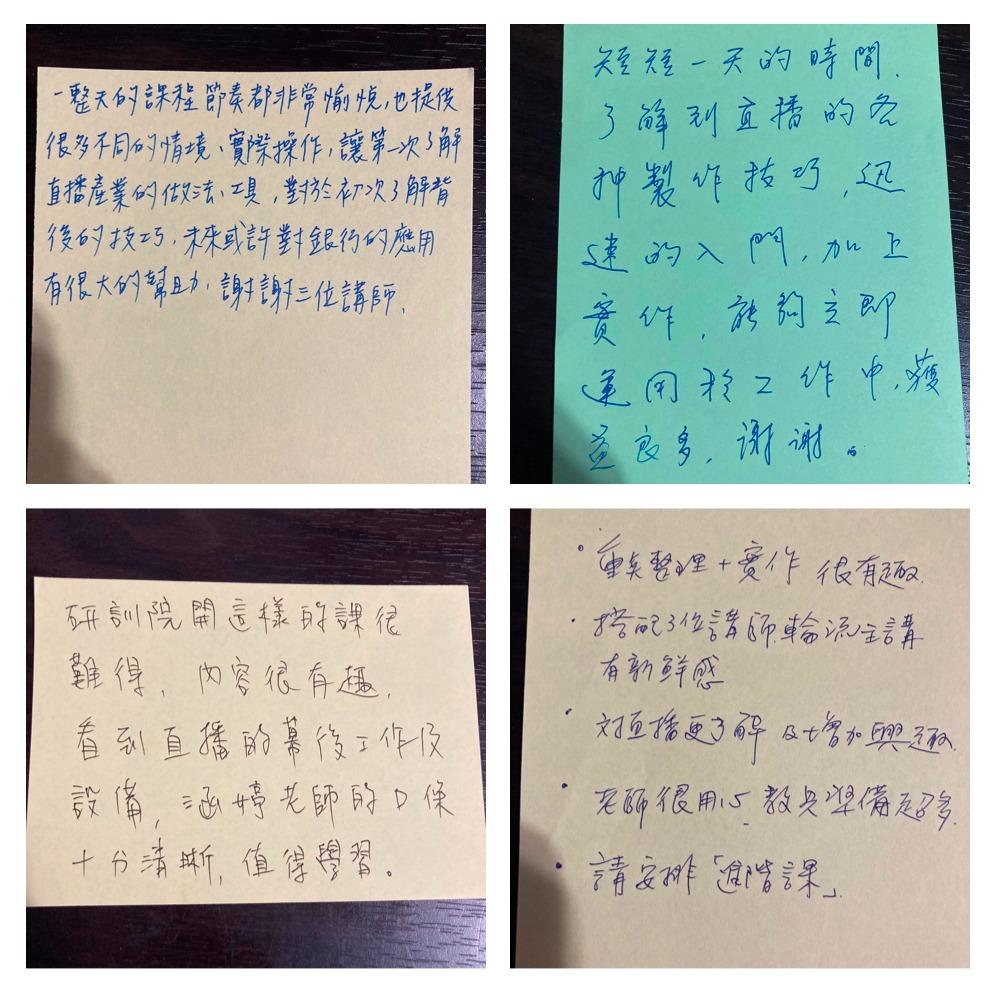 一整天的課程節奏都非常愉悅,也提供
很多不同的情境、實際操作,讓第一次了解
直播產業的做法、工具,對於初次了解背
後的技巧,未來或許對銀行的應用
有很大的幫助,謝謝三位講師.
短短一天的時間,
了解到直播的各
种製作技巧,迅
速的入門,加上
實作,能夠立即
運用於工作中,獲
益良多,謝謝。
研訓院開這樣的課很
難得,內容很有趣,
看到直播的幕後工作及
設備,涵婷老師的口條
十分清晰,值得學習。
• 重點整理+實作 很有趣.
• 搭配3位講師輪流主講
有新鮮感
• 对直播更了解 及增加興趣.
• 老師很用心, 教具準備超多.
• 請安排「進階課」.